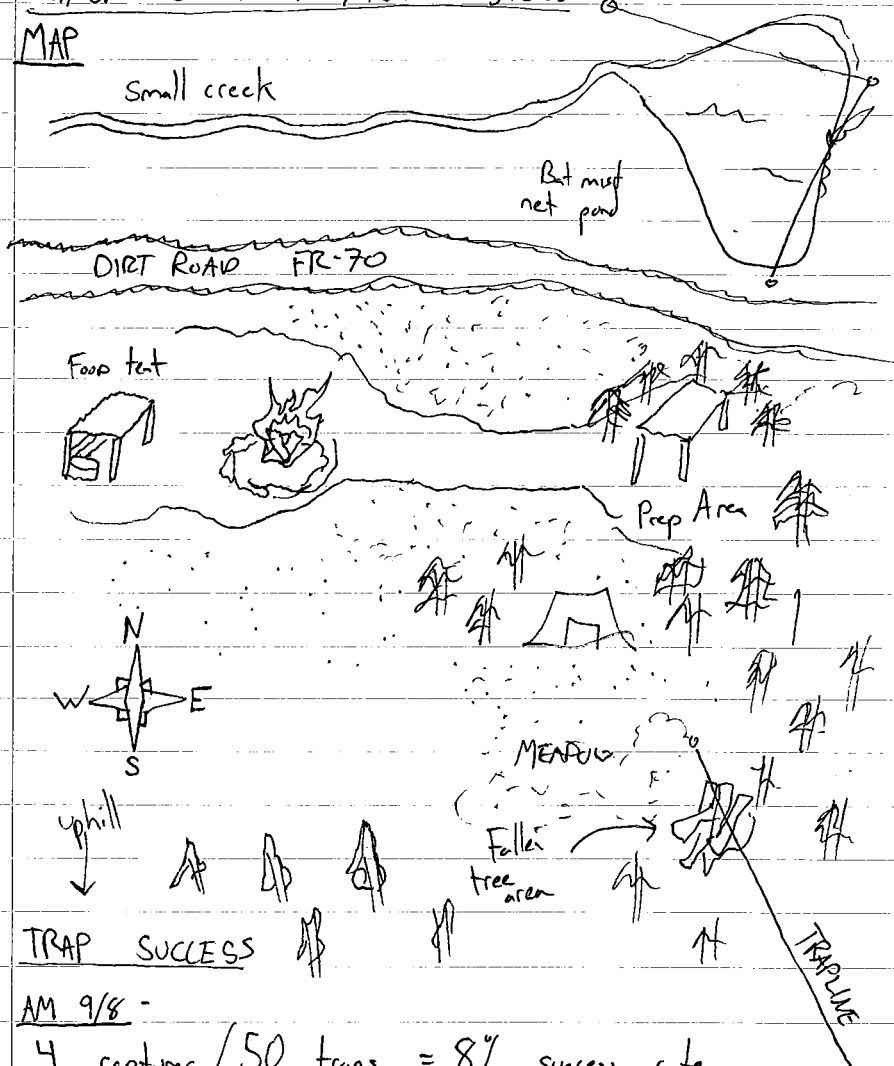 MAP
Small creek
Bat mist
net pond
DIRT ROAD FR-70
Food tent
Prep Area
N
W E
S
MEADOW
uphill
Fallen
tree
area
TRAP SUCCESS
TRAPLINE
AM 9/8 -
4 captures / 50 traps = 8% success rate